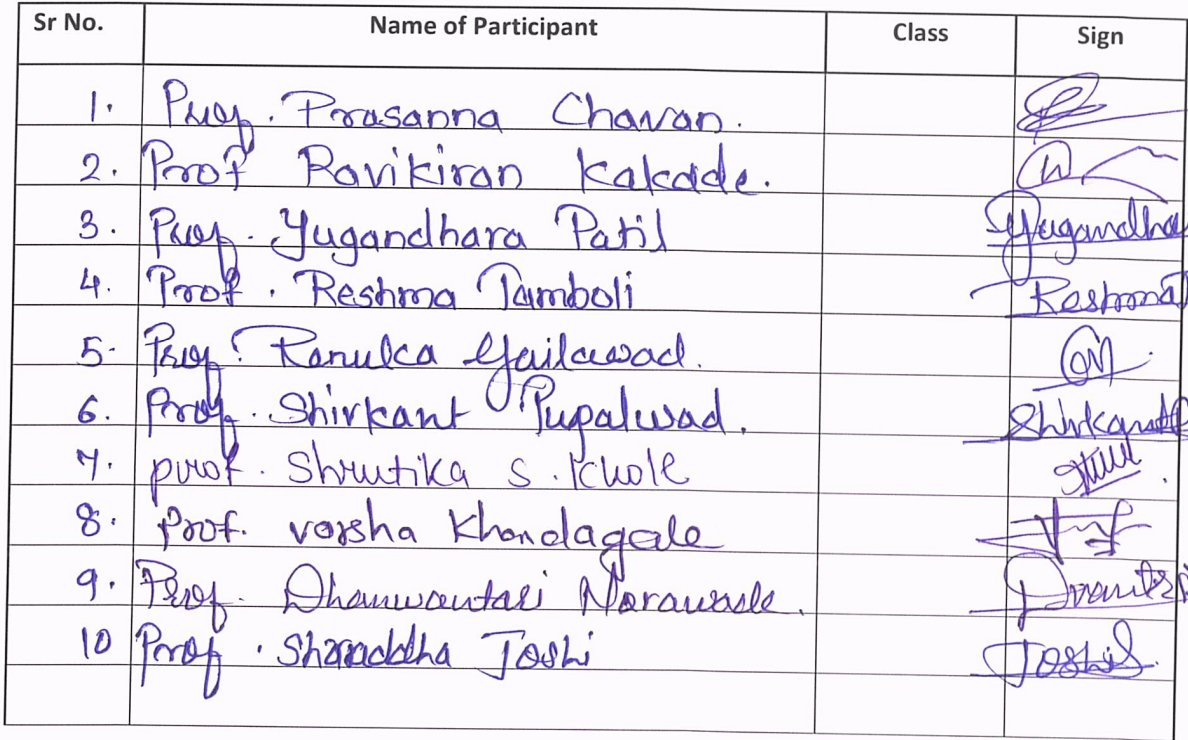 Sr No. Name of Participant Class Sign
1. Prof. Prasanna Chavan.
2. Prof Ravikiran Kakade.
3. Prof. Yugandhara Patil Yugandhara
4. Prof. Reshma Tamboli Reshma
5. Prof. Renuka Gaikawad.
6. Prof. Shirkant Pupalwad. Shirkant
7. prof. Shrutika S. Khole
8. Prof. varsha Khandagale
9. Prof. Dhanwantari
10 Prof. Sharaddha Joshi Joshi S.